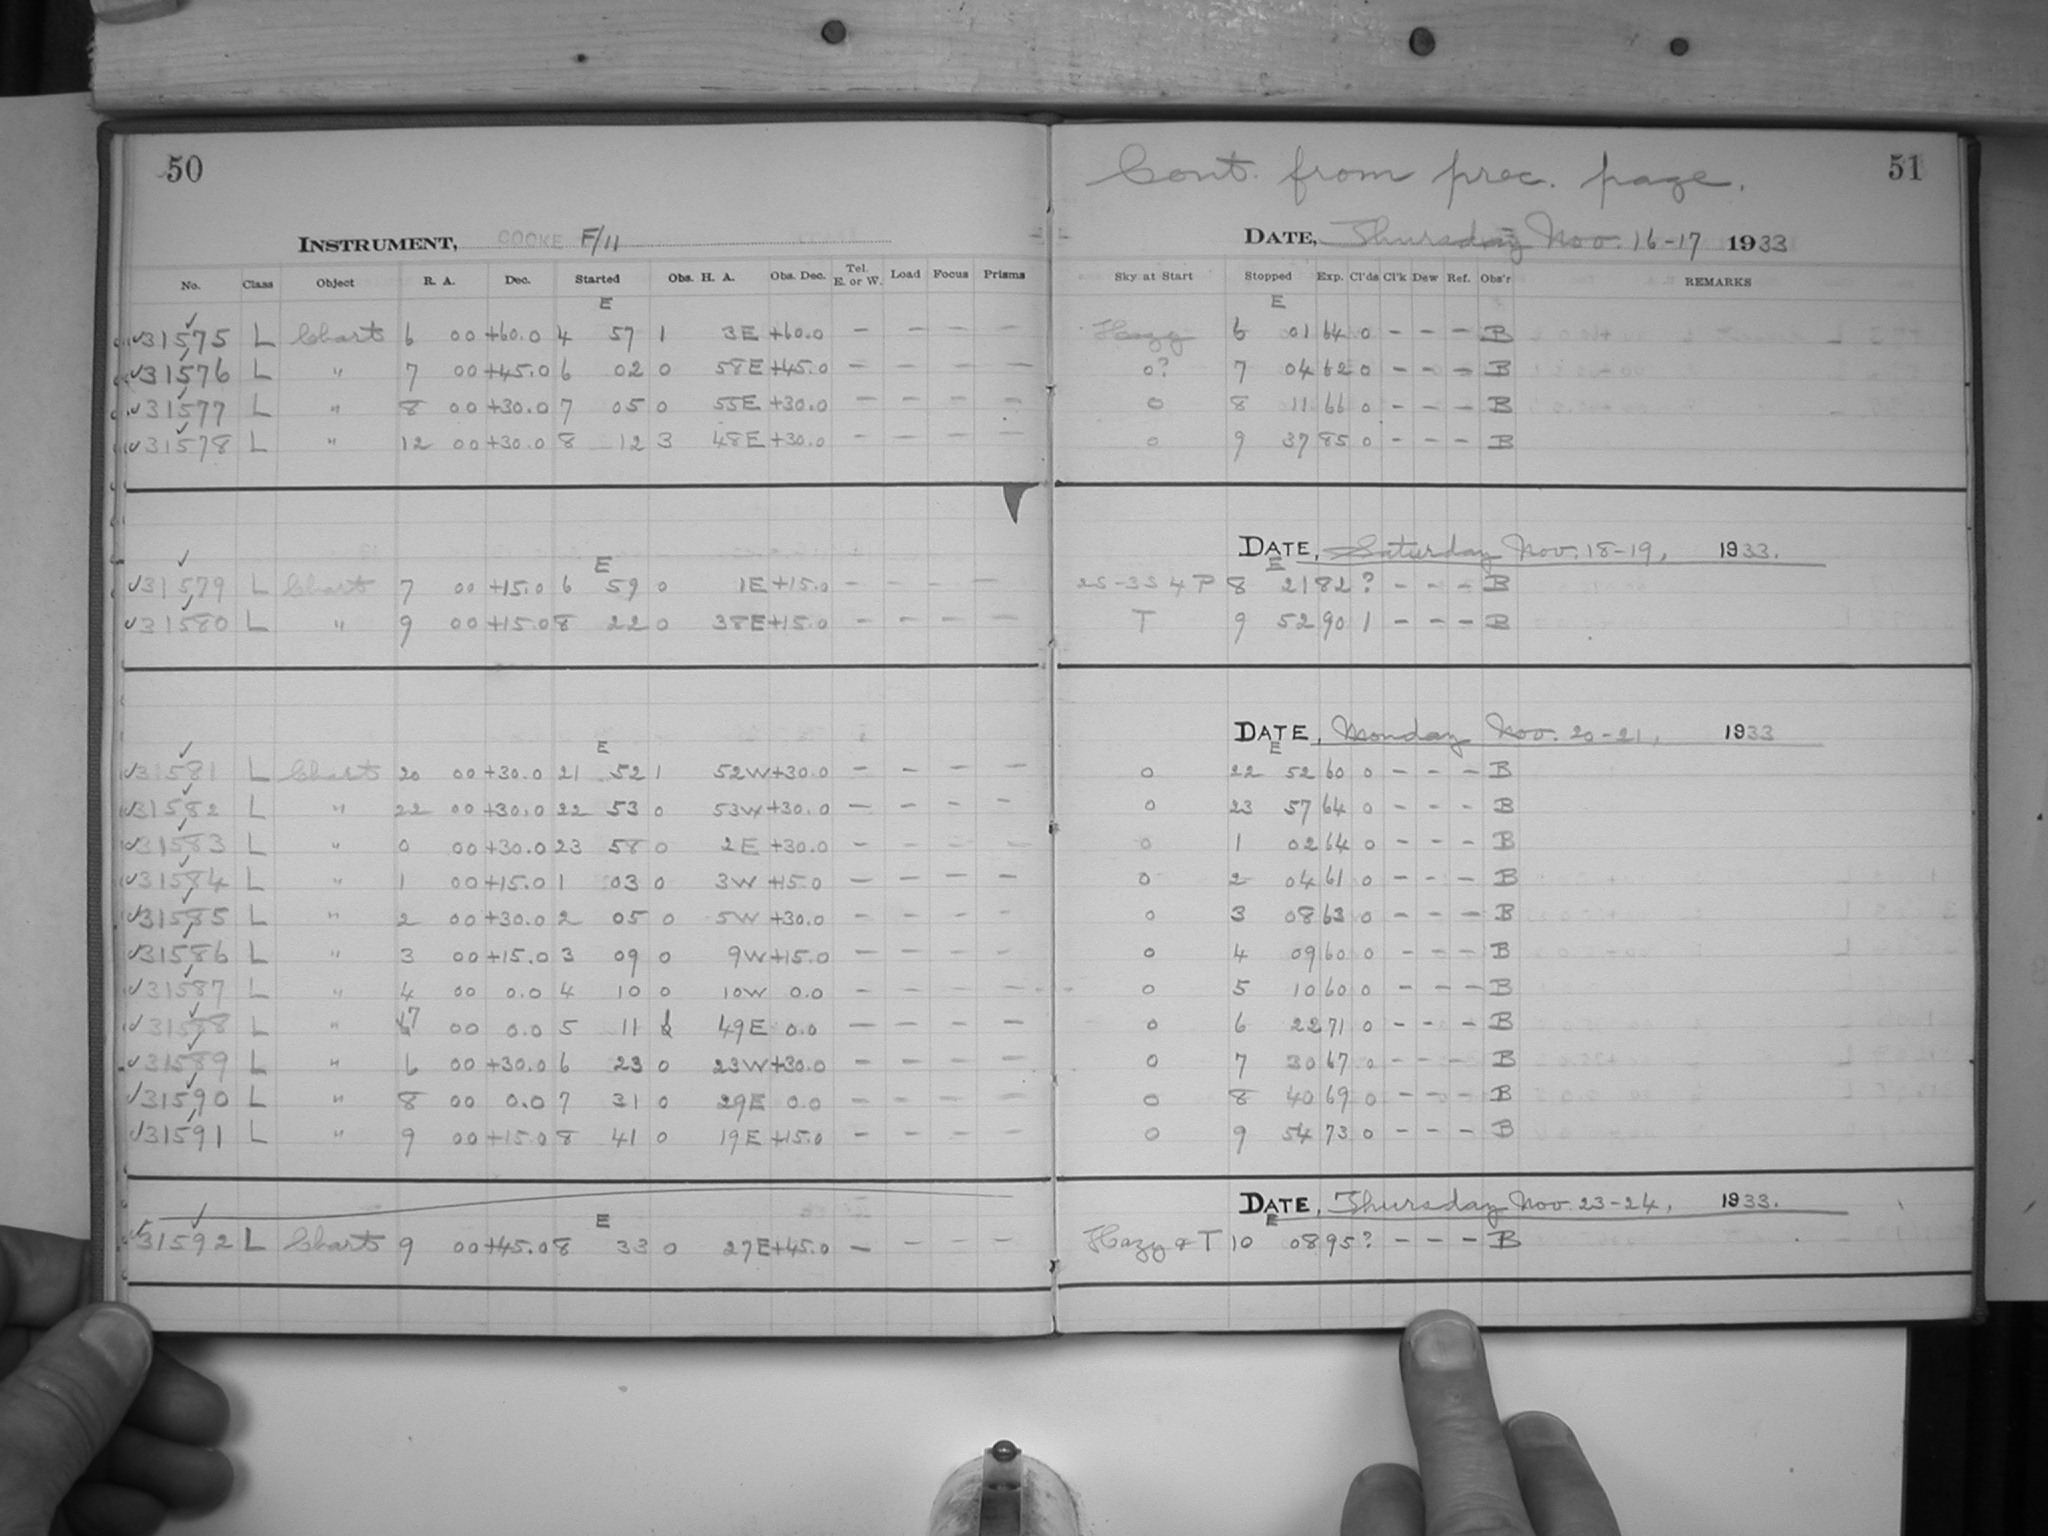 50
INSTRUMENT, COOKE F/11
No. Class Object R. A. Dec. Started Obs. H. A. Obs. Dec. Tel. E. or W. Load Focus Prisms
E
✓31575 L Chart 6 00 +60.0 4 57 1 3E +60.0 – – – –
✓31576 L " 7 00 +45.0 6 02 0 58E +45.0 – – – –
✓31577 L " 8 00 +30.0 7 05 0 55E +30.0 – – – –
✓31578 L " 12 00 +30.0 8 12 3 48E +30.0 – – – –
E
✓31579 L Chart 7 00 +15.0 6 59 0 1E +15.0 – – – –
✓31580 L " 9 00 +15.0 8 22 0 38E +15.0 – – – –
E
✓31581 L Chart 20 00 +30.0 21 52 1 52W +30.0 – – – –
✓31582 L " 22 00 +30.0 22 53 0 53W +30.0 – – – –
✓31583 L " 0 00 +30.0 23 58 0 2E +30.0 – – – –
✓31584 L " 1 00 +15.0 1 03 0 3W +15.0 – – – –
✓31585 L " 2 00 +30.0 2 05 0 5W +30.0 – – – –
✓31586 L " 3 00 +15.0 3 09 0 9W +15.0 – – – –
✓31587 L " 4 00 0.0 4 10 0 10W 0.0 – – – –
✓31588 L " 7 00 0.0 5 11 1 49E 0.0 – – – –
✓31589 L " 6 00 +30.0 6 23 0 23W +30.0 – – – –
✓31590 L " 8 00 0.0 7 31 0 29E 0.0 – – – –
✓31591 L " 9 00 +15.0 8 41 0 19E +15.0 – – – –
E
✓31592 L Chart 9 00 +45.0 8 33 0 27E +45.0 –
Cont. from prec. page. 51
DATE, Thursday Nov. 16-17 1933
Sky at Start Stopped Exp. Cl'ds Cl'k Dew Ref. Obs'r REMARKS
E
Hazy 6 01 64 0 – – – B
0? 7 04 62 0 – – – B
0 8 11 66 0 – – – B
0 9 37 85 0 – – – B
DATE, Saturday Nov. 18-19, 1933.
E
2S-3S 4 P 8 21 82 ? – – – B
T 9 52 90 1 – – – B
DATE, Monday Nov. 20-21, 1933
E
0 22 52 60 0 – – – B
0 23 57 64 0 – – – B
0 1 02 64 0 – – – B
0 2 04 61 0 – – – B
0 3 08 63 0 – – – B
0 4 09 60 0 – – – B
0 5 10 60 0 – – – B
0 6 22 71 0 – – – B
0 7 30 67 0 – – – B
0 8 40 69 0 – – – B
0 9 54 73 0 – – – B
DATE, Thursday Nov. 23-24, 1933.
E
Hazy & T 10 08 95 ? – – – B